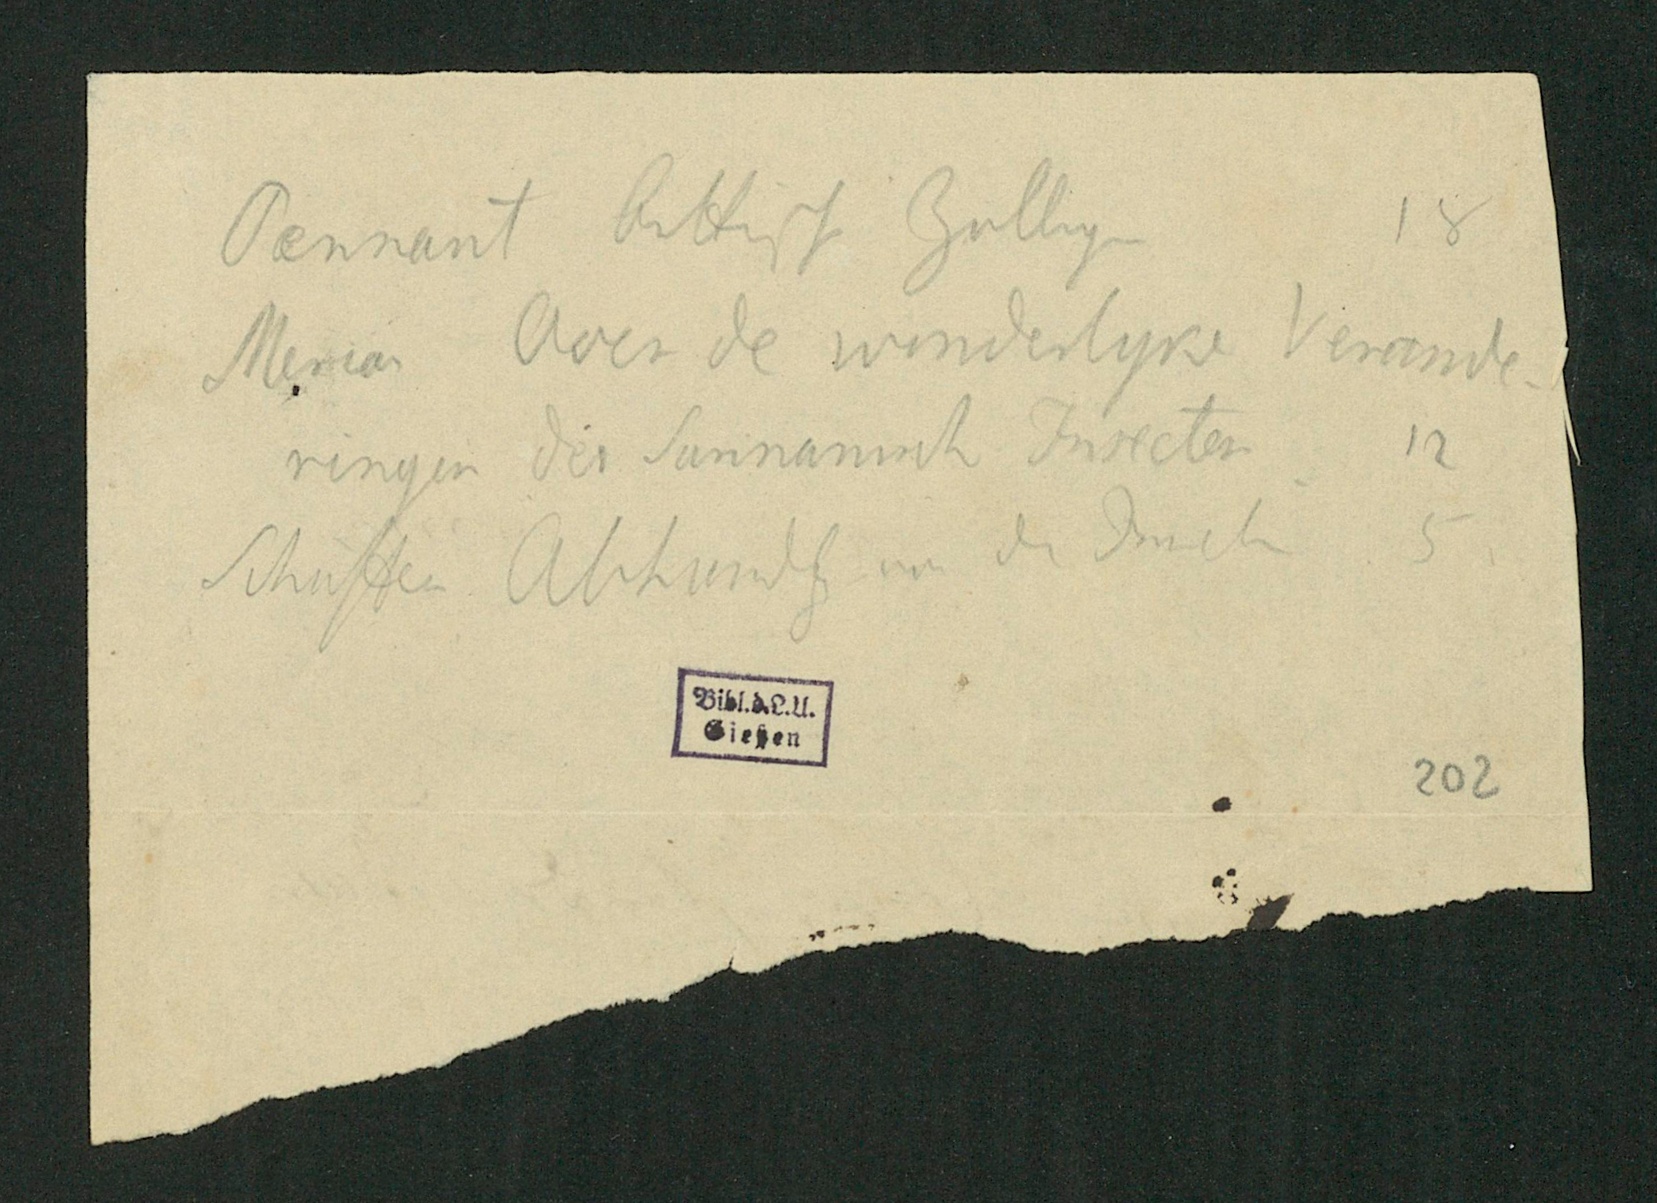 Pennant Brittisch Zoology 18
Merian Over de wonderlyke Verande-
ringen der Surinamsch Insecten 12
Schäffer Abhandlg von der Insect 5
Bibl.d.L.U.
Gießen
202